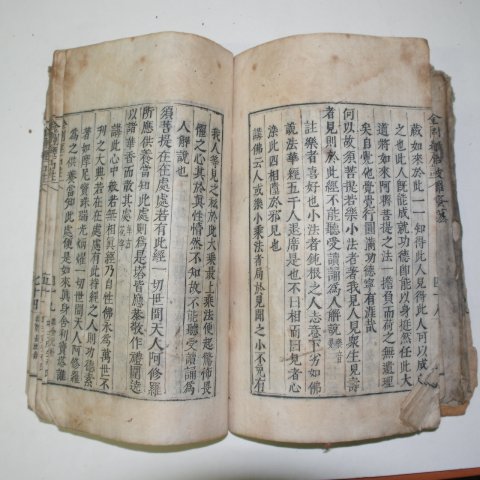 蔵如來於此一一知得此人見得此人可以成
之也此人既能成就功德即能以身挺然任此大
道將如來阿耨菩提之法一擔負而荷之無遺理
矣自覺他覺覺行圓滿功德寧有涯哉
何以故須菩提若樂小法者著我見人見衆生見壽
者見則於此經不能聽受讀誦爲人解說
註樂者喜好也小法者鈍根之人志意下劣如佛
說法華經五千人退席是也不曰相而曰見者心
染此四相陸於邪見也
講佛云人或樂小乘法者局於見聞之小不免有
我人等見之私於此大乘最上乘法便起驚怖畏
懼之心其於眞性懵然不知故不能聽受讀誦爲
人解說也
須菩提在在處處若有此經一切世間天人阿修羅
所應供養當知此處則爲是塔皆應恭敬作禮圍遶
以諸華香而散其處
講此心中故若無相眞經乃自性佛永爲萬世不
刋之大典若在在處處有此持經之人則功德素
著如摩尼寶珠光耀一切世間天人阿修羅
爲之供養當知此處便是如來眞身舍利寶塔雖